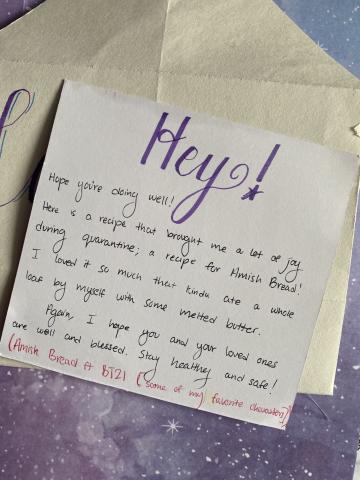 Hey!
Hope you're doing well!
Here is a recipe that brought me a lot of joy
during quarantine; a recipe for Amish Bread!
I loved it so much that kinda ate a whole
loaf by myself with some melted butter.
Again, I hope you and your loved ones
are well and blessed. Stay healthy and safe!
(Amish Bread ft BT21 (some of my favorite characters)